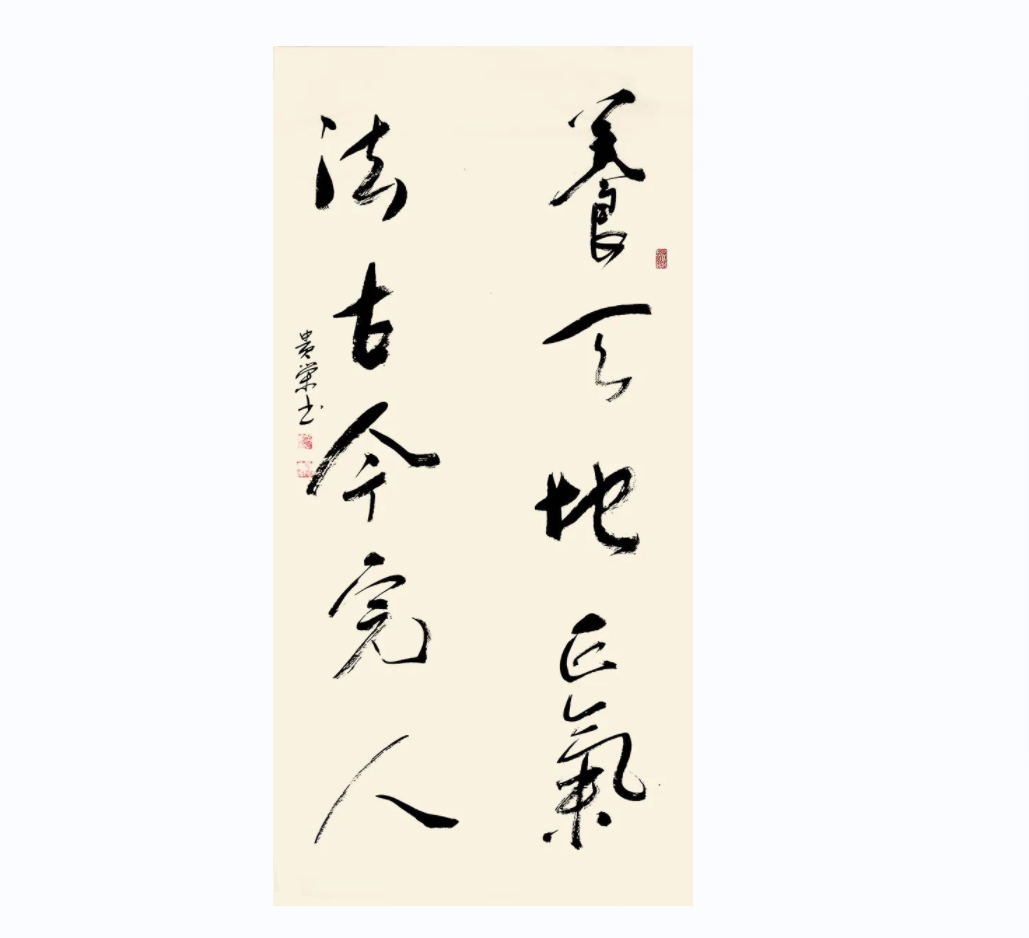 養天地正氣
法古今完人
貴榮书